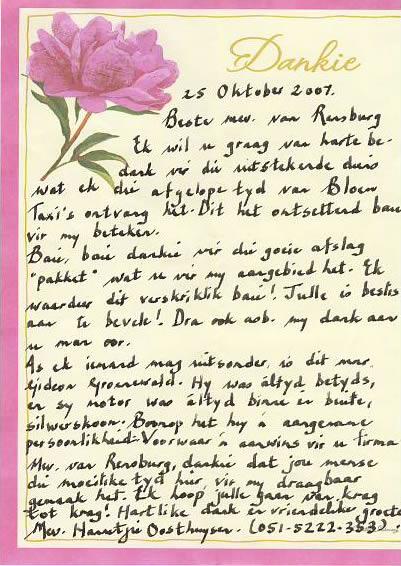 Dankie
25 Oktober 2007.
Beste mev. van Rensburg
Ek wil u graag van harte be-
dank vir die uitstekende diens
wat ek die afgelope tyd van Bloem
Taxi's ontvang het. Dit het ontsettend baie
vir my beteken.
Baie, baie dankie vir die goeie afslag
"pakket" wat u vir my aangebied het. Ek
waardeer dit verskriklik baie! Julle is beslis
aan te beveel! Dra ook asb. my dank aan
u man oor.
As ek iemand mag uitsonder, is dit mnr.
Gideon Groenewald. Hy was áltyd betyds,
en sy motor was áltyd binne en buite,
silwerskoon. Boonop het hy 'n aangename
persoonlikheid. Voorwaar 'n aanwins vir u firma
Mev. van Rensburg, dankie dat jou mense
die moeilike tyd hier, vir my draagbaar
gemaak het. Ek hoop julle gaan van krag
tot krag! Hartlike dank en vriendelike groete
Mev. Hannetjie Oosthuysen. (051-5222-353).